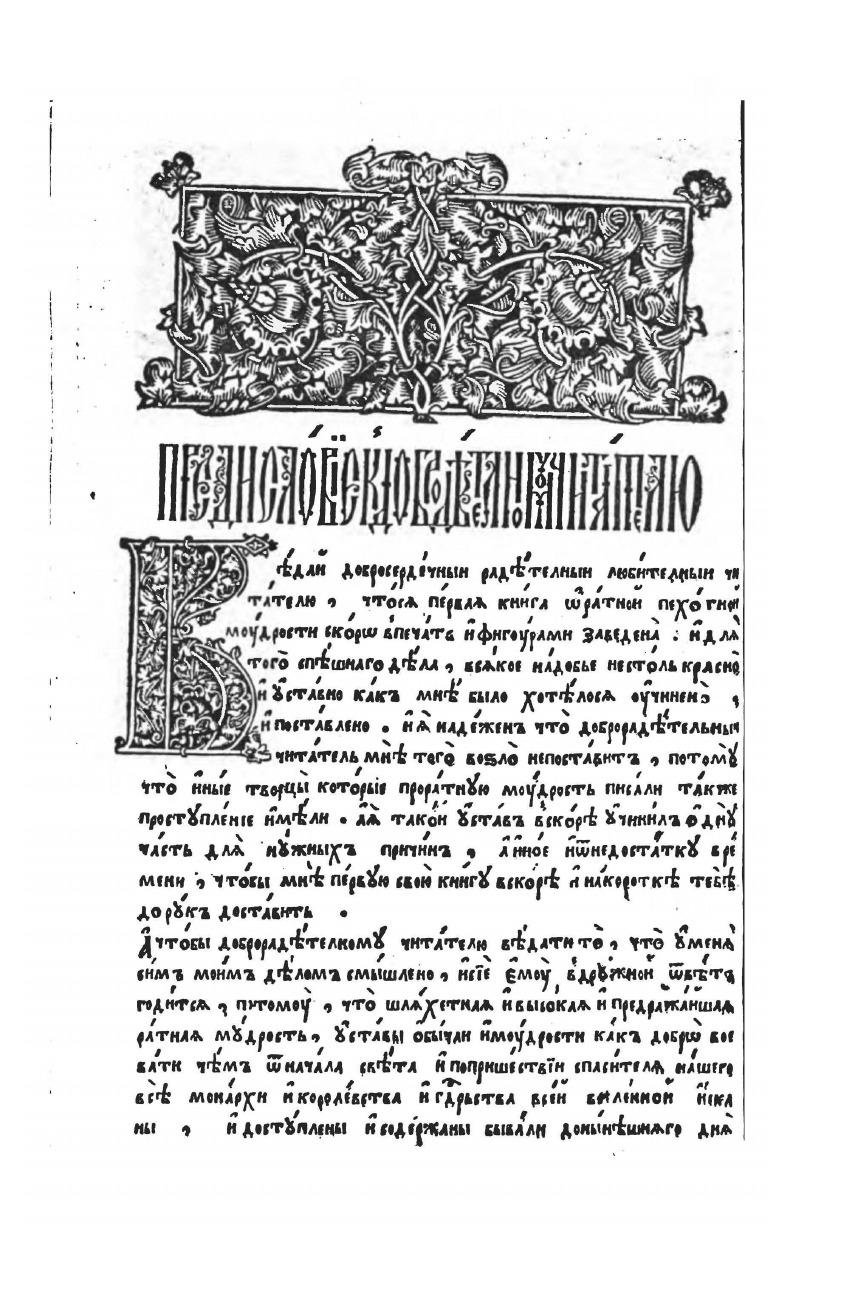 Предисловїе к добродѣтелному читателю
Вѣдай добросердечныи радѣтелныи любителныи чи
тателю , что ся первая книга ѿ ратной пехотной
моудрости скорѡ в печать и фигоурами заведена . и для
того спѣшнаго дѣла , всякое надобье не столь красно
и уставно какъ мнѣ было хотѣлося оучинено ,
и поставлено . и я надеженъ что доброрадѣтельныи
читатель мнѣ того во ѕло непоставитъ , потому
что иные творцы которые про ратную моудрость писали также
проступленїе имѣли . а я такой уставъ вскорѣ учинилъ одну
часть для нужныхъ причин , а иное и ѿ недостатку вре
мени , чтобы мнѣ первую свою книгу вскорѣ и накороткѣ тебѣ
до рукъ доставить .
А чтобы доброрадѣтелкому читателю вѣдати то , что у меня
симъ моимъ дѣломъ смышлено , и сїе емоу в дружной ѿвѣтъ
годится , путомоу , что шляхетная и высокая и предражайшая
ратная мудрость , уставы обычаи и моудрости какъ добрѡ вое
вати чѣмъ ѿ начала свѣта и по пришествїи спасителя нашего
всѣ монархи и королевства и гдрьства всей вселенной иска
ны , и доступлены и содержаны бывали до нынѣшняго дня